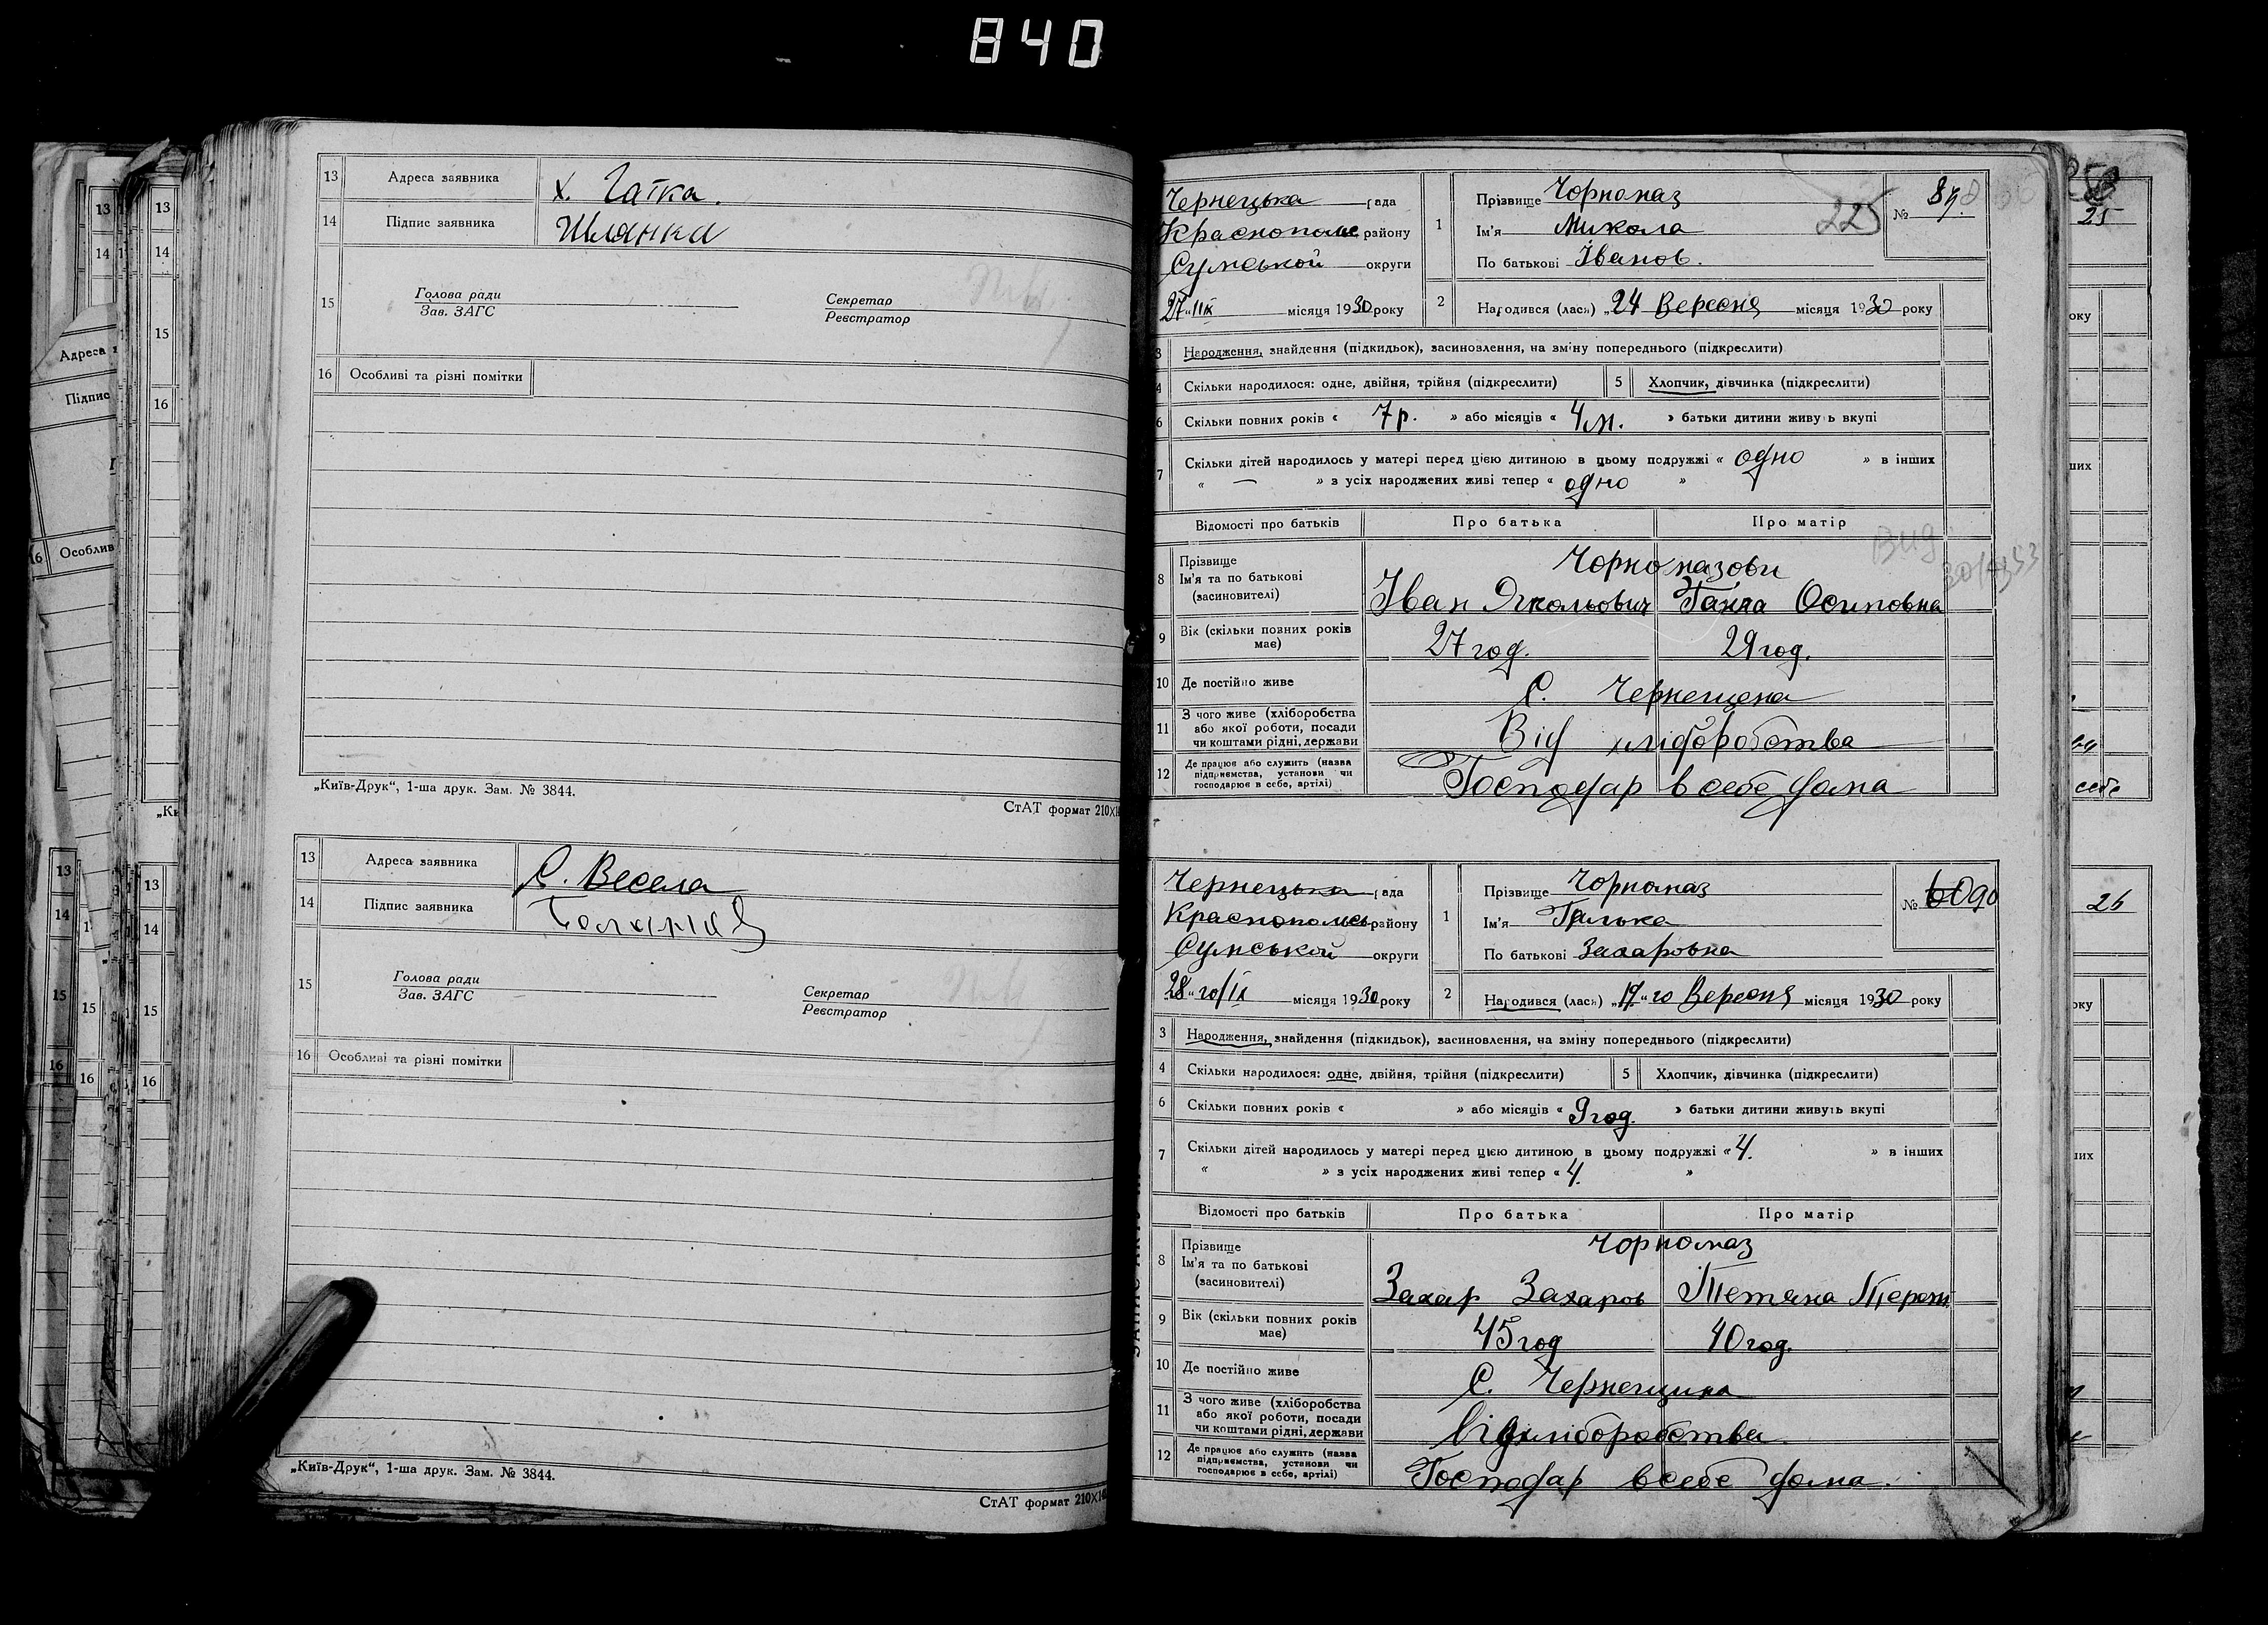 840
13 Адреса заявника х. Гатка.
14 Підпис заявника Шлянка
15 Голова ради
Зав. ЗАГС
Секретар
Реєстратор
16 Особливі та різні помітки
„Київ-Друк“, 1-ша друк. Зам. № 3844.
СтАТ формат 210х
13 Адреса заявника С. Весела
14 Підпис заявника
15 Голова ради
Зав. ЗАГС
Секретар
Реєстратор
16 Особливі та різні помітки
„Київ-Друк“, 1-ша друк. Зам. № 3844.
СтАТ формат 210х
Чернецька рада
Краснопольс району
Сумської округи
27 місяця 1930 року
1 Прізвище Чорномаз
Ім'я Микола
По батькові Іванов.
225
№ 89.
2 Народився (лась) „24 Вересня місяця 1930 року
3 Народження, знайдення (підкидьок), засиновлення, на зміну попереднього (підкреслити)
4 Скільки народилося: одне, двійня, трійня (підкреслити) 5 Хлопчик, дівчинка (підкреслити)
6 Скільки повних років « 7 р. » або місяців « 4 м. » батьки дитини живуть вкупі
7 Скільки дітей народилось у матері перед цією дитиною в цьому подружжі « одно » в інших
« — » з усіх народжених живі тепер « одно »
Відомості про батьків Про батька Про матір
8 Прізвище
Ім'я та по батькові
(засиновителі)
Чорномазови
Іван Якольович Ганна Осиповна
9 Вік (скільки повних років має) 27 год. 29 год.
10 Де постійно живе С. Чернещена
11 З чого живе (хліборобства або якої роботи, посади чи коштами рідні, держави Від хліборобства
12 Де працює або служить (назва підприємства, установи чи господарює в себе, артілі) Господар в себе дома
Вид
Чернецька рада
Краснопольсь району
Сумської округи
28“ го/IX місяця 1930 року
1 Прізвище Чорномаз
Ім'я Галька
По батькові Захаровна
№ 90
2 Народився (лась) „17“ го Вересня місяця 1930 року
3 Народження, знайдення (підкидьок), засиновлення, на зміну попереднього (підкреслити)
4 Скільки народилося: одне, двійня, трійня (підкреслити) 5 Хлопчик, дівчинка (підкреслити)
6 Скільки повних років « » або місяців « 9 год. » батьки дитини живуть вкупі
7 Скільки дітей народилось у матері перед цією дитиною в цьому подружжі « 4. » в інших
« » з усіх народжених живі тепер « 4. »
Відомості про батьків Про батька Про матір
8 Прізвище
Ім'я та по батькові
(засиновителі)
Чорномаз
Захар Захаров Тетяна
9 Вік (скільки повних років має) 45 год 40 год.
10 Де постійно живе С. Чернещина
11 З чого живе (хліборобства або якої роботи, посади чи коштами рідні, держави Від хліборобства
12 Де працює або служить (назва підприємства, установи чи господарює в себе, артілі) Господар в себе дома.
25
26
себе